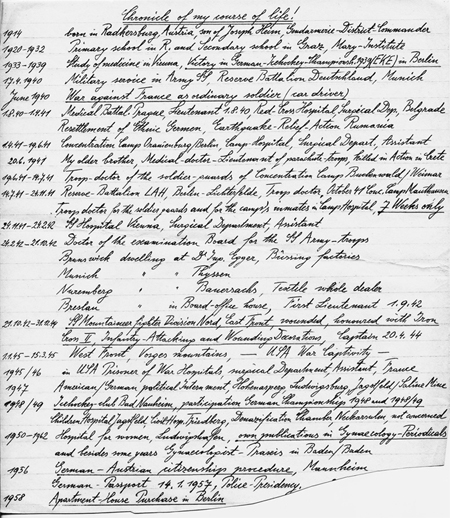 Chronicle of my course of life!
1914 born in Radkersburg, Austria, son of Joseph Heim Gendarmerie-District-Commander
1920-1932 Primary school in R. and Secondary school in Graz, Mary-Institute
1933-1939 Study of medicine in Vienna, Victory in German-Icehockey-Championsh. 1939 (EKE) in Berlin
17.4.1940 Military service in Army SS Reserve Battalion Deutschland, Munich
June 1940 War against France as ordinary soldier (car driver)
1.8.40-1.4.41 Medical Battal. Prague, Lieutenant 1.8.40, Red-Cross Hospital, Surgical Dep., Belgrade
Resettlement of Ethnic Germen, Earthquake-Relief-Action Rumania
-19.6.41 Concentration Camp Oranienburg/Berlin, Camp-Hospital, Surgical Depart., Assistant
20.6.1941 My older brother, Medical-doctor-Lieutenant of parachute troops, killed in Action in Crete
19.6.41-14.7.41 Troop-doctor of the soldier-guards of Concentration Camps Buchenwald/Weimar
14.7.41-24.11.41 Reserve-Battalion LAH, Berlin-Lichterfelde, Troops doctor, October 41 Conc. Camp Mauthausen
Troops doctor for the soldier guards and for the camp's inmates in Camp Hospital, 7 Weeks only
24.11.41-24.2.42 SS Hospital Vienna, Surgical Department, Assistant
24.2.42-21.10.42 Doctor of the examination Board for the SS Army-troops
Brunswick dwelling at Dr. Ing. Egger, Büssing factories
Munich " " Thyssen
Nuremberg " " Bauersachs, Textile whole dealer
Breslau " in Board-office house, First Lieutenant 1.9.42
21.10.42- SS Mountaineer fights Division Nord, East Front wounded, honoured with Iron
Cross II, Infantry Attacking and Wounding Decorations Captain 20.4.44
1.1.45-15.3.45 West Front, Vosges mountains, — USA War Captivity —
1945/46 in USA Prisoner of War Hospitals, surgical Department, Assistant, France
1947 American/German political Internment Hohenasperg Ludwigsburg/Jagstfeld/Saline Mine
1948/49 Icehockey club Bad Nauheim, participation German Championships 1948 and 1948/49
Children Hospital Jagstfeld, Civil Hosp. Friedberg, Denazification Chamber Neckarsulm, not concerned
1950-1962 Hospital for women, Ludwigshafen, own publications in Gynaecology-Periodicals
and besides some years Gynaecologist-Praxis in Baden/Baden
1956 German-Austrian citizenship procedure, Mannheim
German-Passport 14.1.1957, Police-Presidency,
1958 Apartment-House Purchase in Berlin